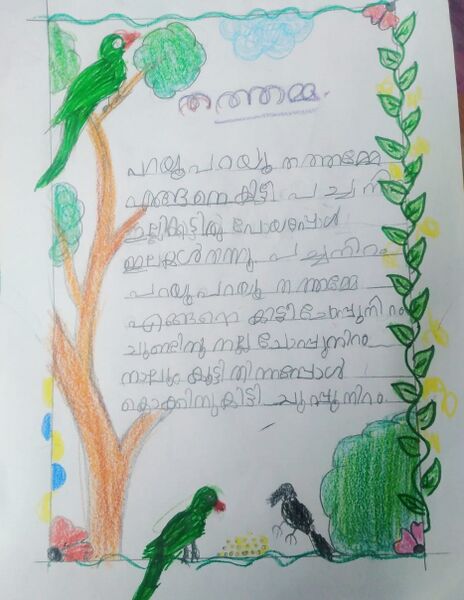 തത്തമ്മ.
പറയൂ പറയൂ തത്തമ്മേ
എങ്ങനെ കിട്ടീ പച്ചനി
ഇല്ലിക്കൂട്ടിൽ പോയപ്പോൾ
ഇലകൾ തന്നു പച്ചനിറം
പറയൂ പറയൂ തത്തമ്മേ
എങ്ങനെ കിട്ടീ ചോപ്പുനിറം
ചുണ്ടിനു നല്ല ചോപ്പുനിറം
കിട്ടി